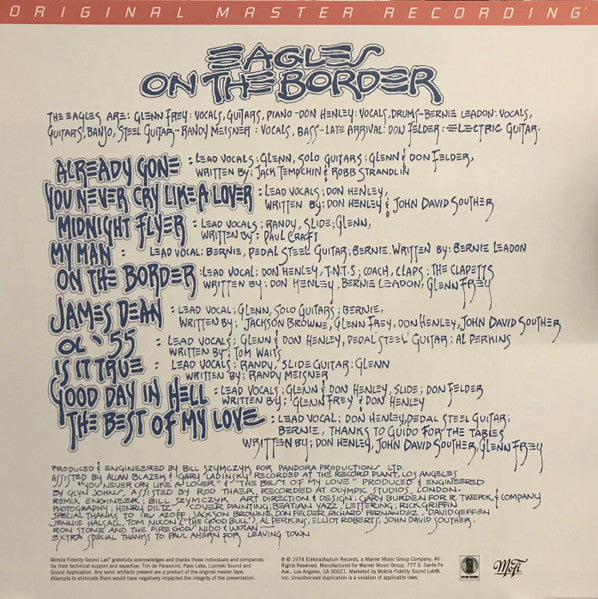 ORIGINAL MASTER RECORDING
EAGLES
ON THE BORDER
THE EAGLES ARE: GLENN FREY: VOCALS, GUITARS, PIANO - DON HENLEY: VOCALS, DRUMS - BERNIE LEADON: VOCALS,
GUITARS, BANJO, STEEL GUITAR - RANDY MEISNER: VOCALS, BASS - LATE ARRIVAL: DON FELDER: ELECTRIC GUITAR.
ALREADY GONE : LEAD VOCALS; GLENN, SOLO GUITARS; GLENN & DON FELDER,
WRITTEN BY; JACK TEMPCHIN & ROBB STRANDLIN
YOU NEVER CRY LIKE A LOVER : LEAD VOCALS; DON HENLEY,
WRITTEN BY: DON HENLEY & JOHN DAVID SOUTHER
MIDNIGHT FLYER : LEAD VOCALS; RANDY, SLIDE; GLENN,
WRITTEN BY: PAUL CRAFT
MY MAN : LEAD VOCAL: BERNIE, PEDAL STEEL GUITAR; BERNIE, WRITTEN BY: BERNIE LEADON
ON THE BORDER : LEAD VOCAL: DON HENLEY, T.N.T.S; COACH, CLAPS: THE CLAPETTS
WRITTEN BY: DON HENLEY, BERNIE LEADON, GLENN FREY
JAMES DEAN : LEAD VOCAL; GLENN, SOLO GUITARS; BERNIE,
WRITTEN BY; JACKSON BROWNE, GLENN FREY, DON HENLEY, JOHN DAVID SOUTHER
OL '55 : LEAD VOCALS: GLENN & DON HENLEY, PEDAL STEEL GUITAR: AL PERKINS
WRITTEN BY: TOM WAITS
IS IT TRUE : LEAD VOCALS: RANDY, SLIDE GUITAR: GLENN
WRITTEN BY: RANDY MEISNER
GOOD DAY IN HELL : LEAD VOCALS; GLENN & DON HENLEY, SLIDE; DON FELDER
WRITTEN BY: GLENN FREY & DON HENLEY
THE BEST OF MY LOVE : LEAD VOCAL; DON HENLEY, PEDAL STEEL GUITAR;
BERNIE, THANKS TO GUIDO FOR THE TABLES
WRITTEN BY: DON HENLEY, JOHN DAVID SOUTHER, GLENN FREY
PRODUCED & ENGINEERED BY BILL SZYMCZYK FOR PANDORA PRODUCTIONS LTD.
ASSISTED BY ALLAN BLAZEK & GARY LADINSKY RECORDED AT THE RECORD PLANT, LOS ANGELES
"YOU NEVER CRY LIKE A LOVER" & "THE BEST OF MY LOVE" PRODUCED & ENGINEERED
BY GLYN JOHNS, ASSISTED BY ROD THAER RECORDED AT OLYMPIC STUDIOS, LONDON.
REMIX ENGINEER: BILL SZYMCZYK. ART DIRECTION & DESIGN: GARY BURDEN FOR R. TWERK & COMPANY
PHOTOGRAPHY: HENRY DILTZ COVER PAINTING, BEATIAN YAZZ, LETTERING; RICK GRIFFIN
SPECIAL THANKS TO IRV AZOFF, JACKSON BROWNE, DON FELDER, RICHARD FERNANDEZ, DAVID GEFFEN
JENNIE HALSALL, TOM NIXON ("THE GOOD BULL"), AL PERKINS, ELLIOT ROBERTS, JOHN DAVID SOUTHER.
RON STONE AND THE FIRE GOD / NIDO & WOTAN
EXTRA SPECIAL THANKS TO PAUL AHERN FOR LEAVING TOWN
Mobile Fidelity Sound Lab® gratefully acknowledges and thanks these individuals and companies
for their technical support and expertise: Tim de Paravicini, Pass Labs, Lipinski Sound and
Sound Application. Any sonic artifacts present are a product of the original master tape.
Attempts to eliminate them would have negatively impacted the integrity of the presentation.
℗ © 1974 Elektra/Asylum Records, a Warner Music Group Company. All
Rights Reserved. Manufactured for Warner Music Group, 777 S. Santa Fe
Ave., Los Angeles, CA 90021. Marketed by Mobile Fidelity Sound Lab®,
Inc. Unauthorized duplication is a violation of applicable laws.
ASYLUM RECORDS
MoFi